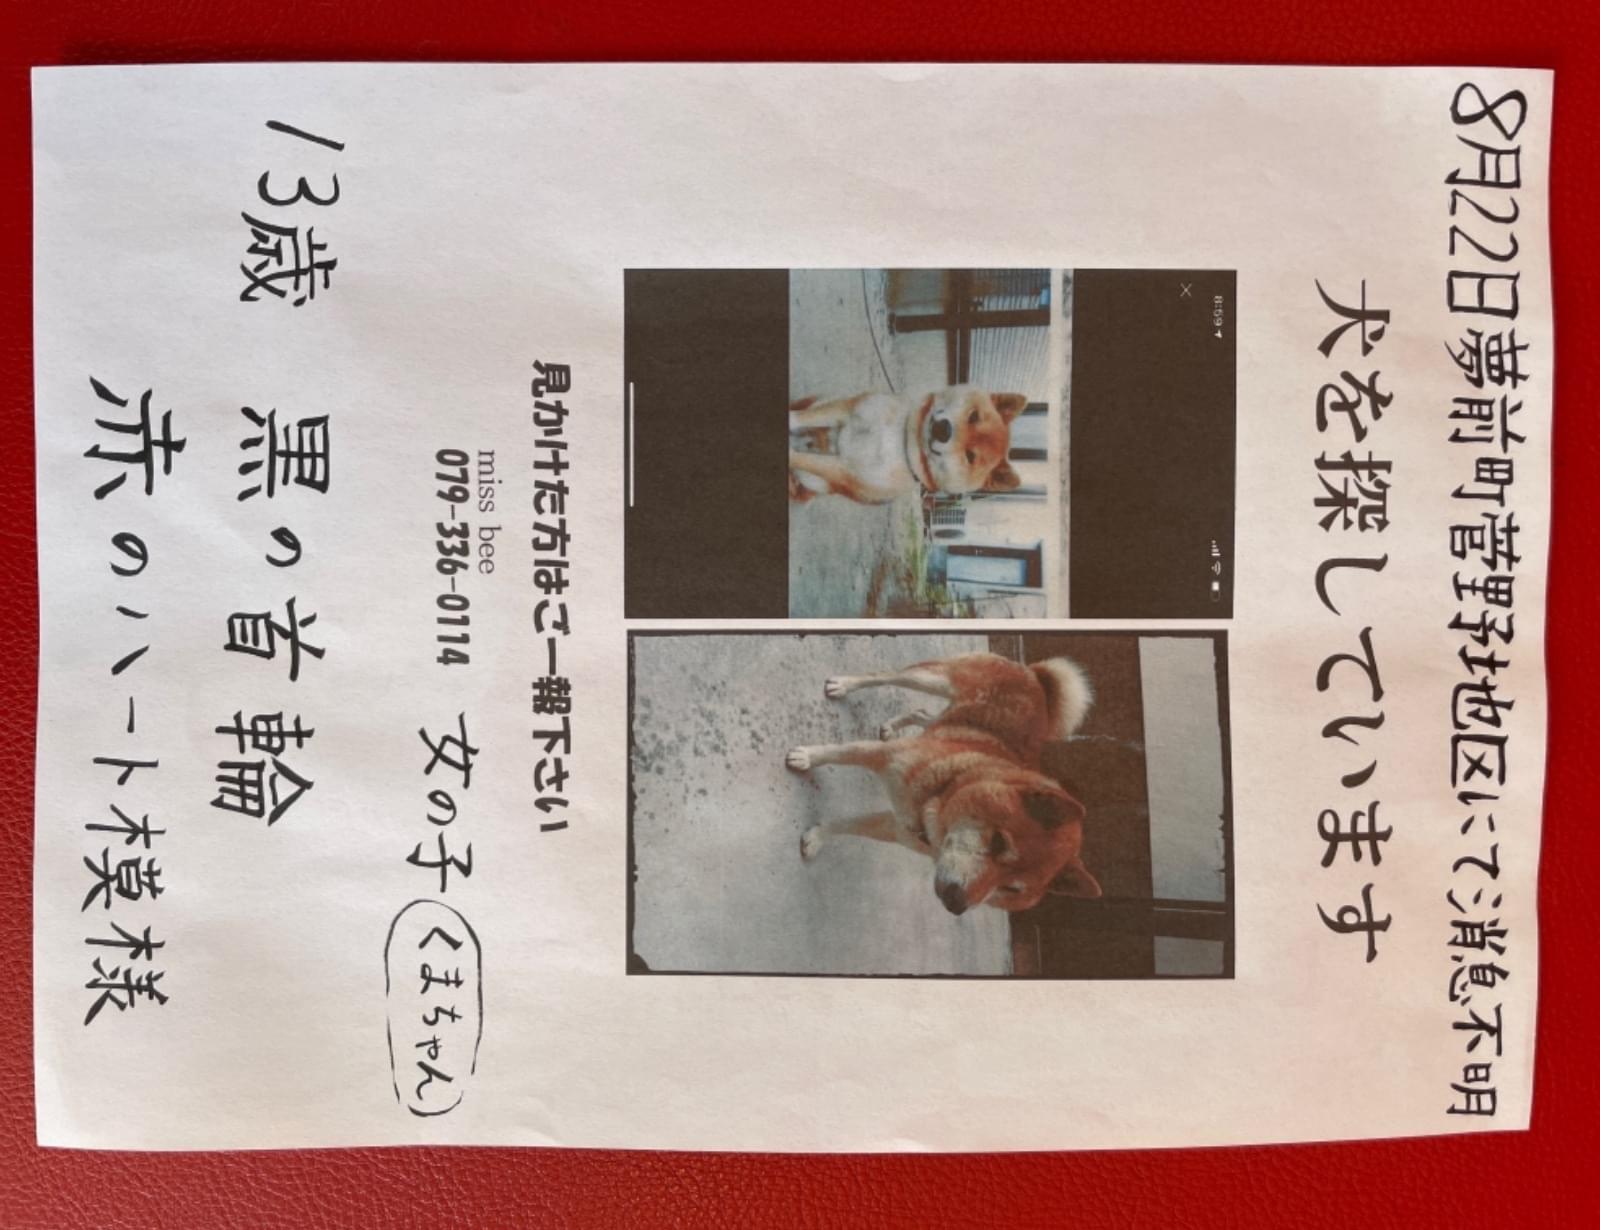 8月22日夢前町菅野地区にて消息不明
犬を探しています
8:59
見かけた方はご一報下さい
miss bee
079-336-0114
女の子(くまちゃん)
13歳 黒の首輪
赤のハート模様